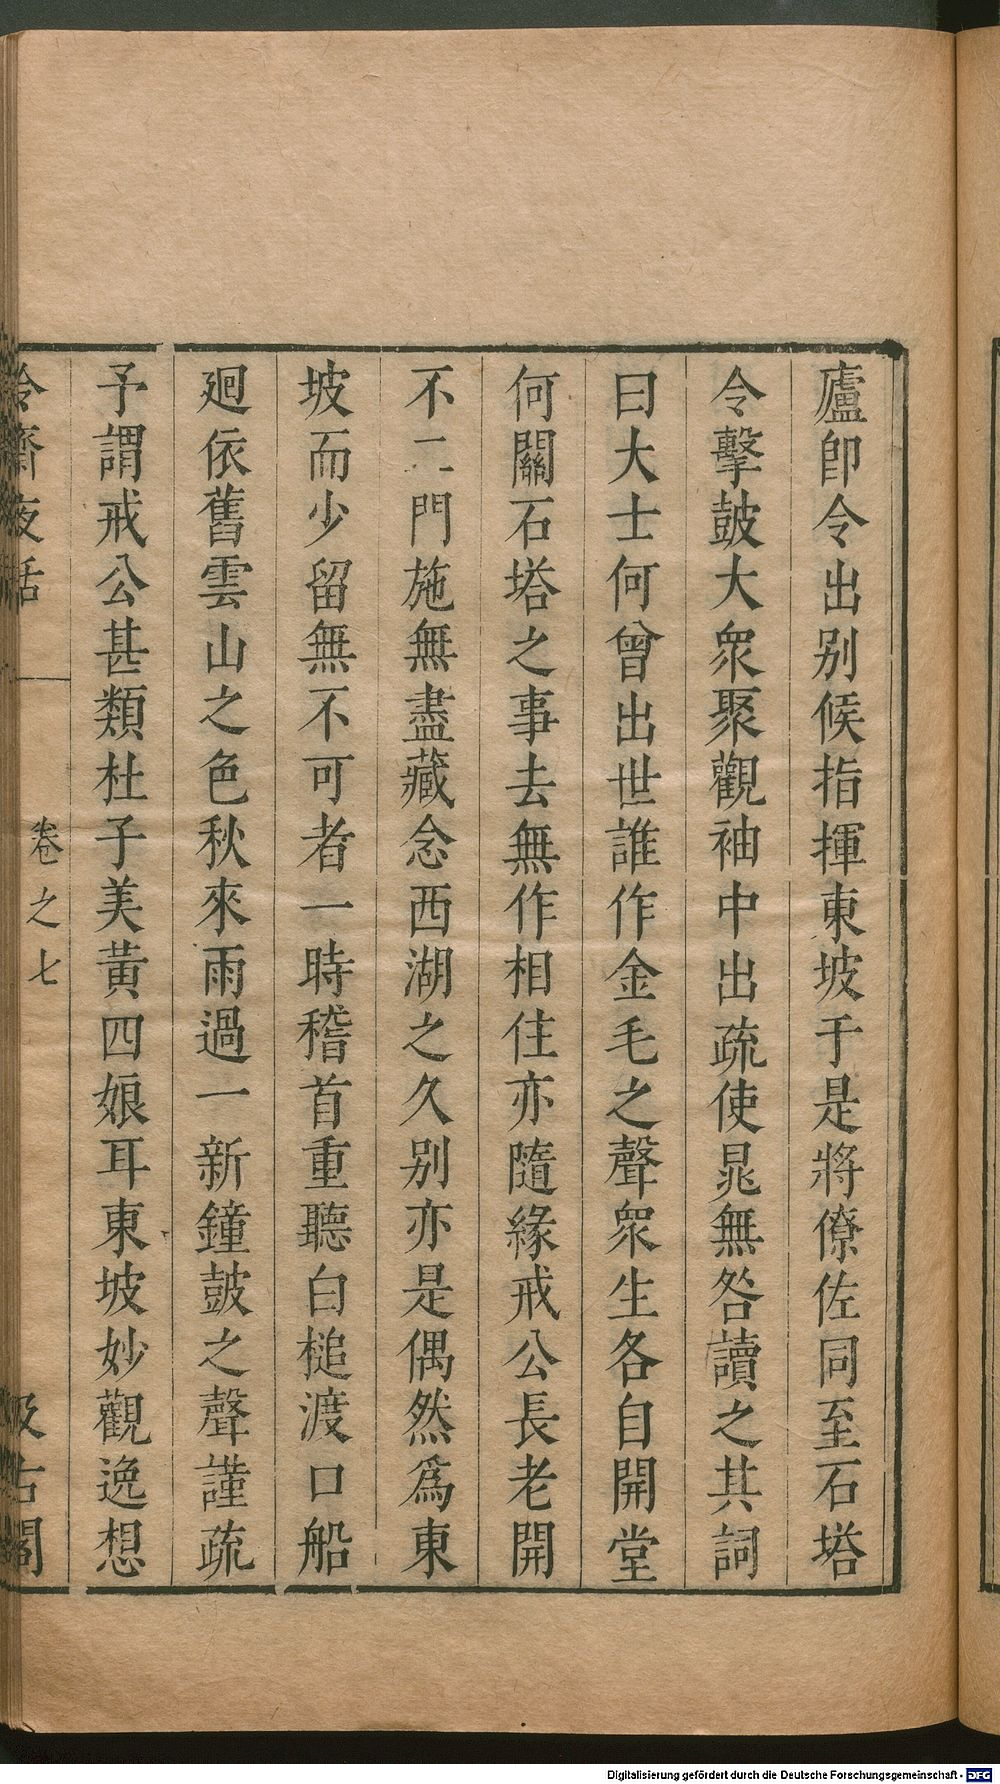 廬卽令出别候指揮東坡于是將僚佐同至石塔
令擊鼓大衆聚觀袖中出疏使晁無咎讀之其詞
曰大士何曾出世誰作金毛之聲衆生各自開堂
何關石塔之事去無作相住亦隨緣戒公長老開
不二門施無盡藏念西湖之久别亦是偶然爲東
坡而少留無不可者一時稽首重聽白槌渡口船
廻依舊雲山之色秋來雨過一新鐘鼓之聲謹疏
予謂戒公甚類杜子美黃四娘耳東坡妙觀逸想
冷齋夜話 卷之七 汲古閣
Digitalisierung gefördert durch die Deutsche Forschungsgemeinschaft - DFG